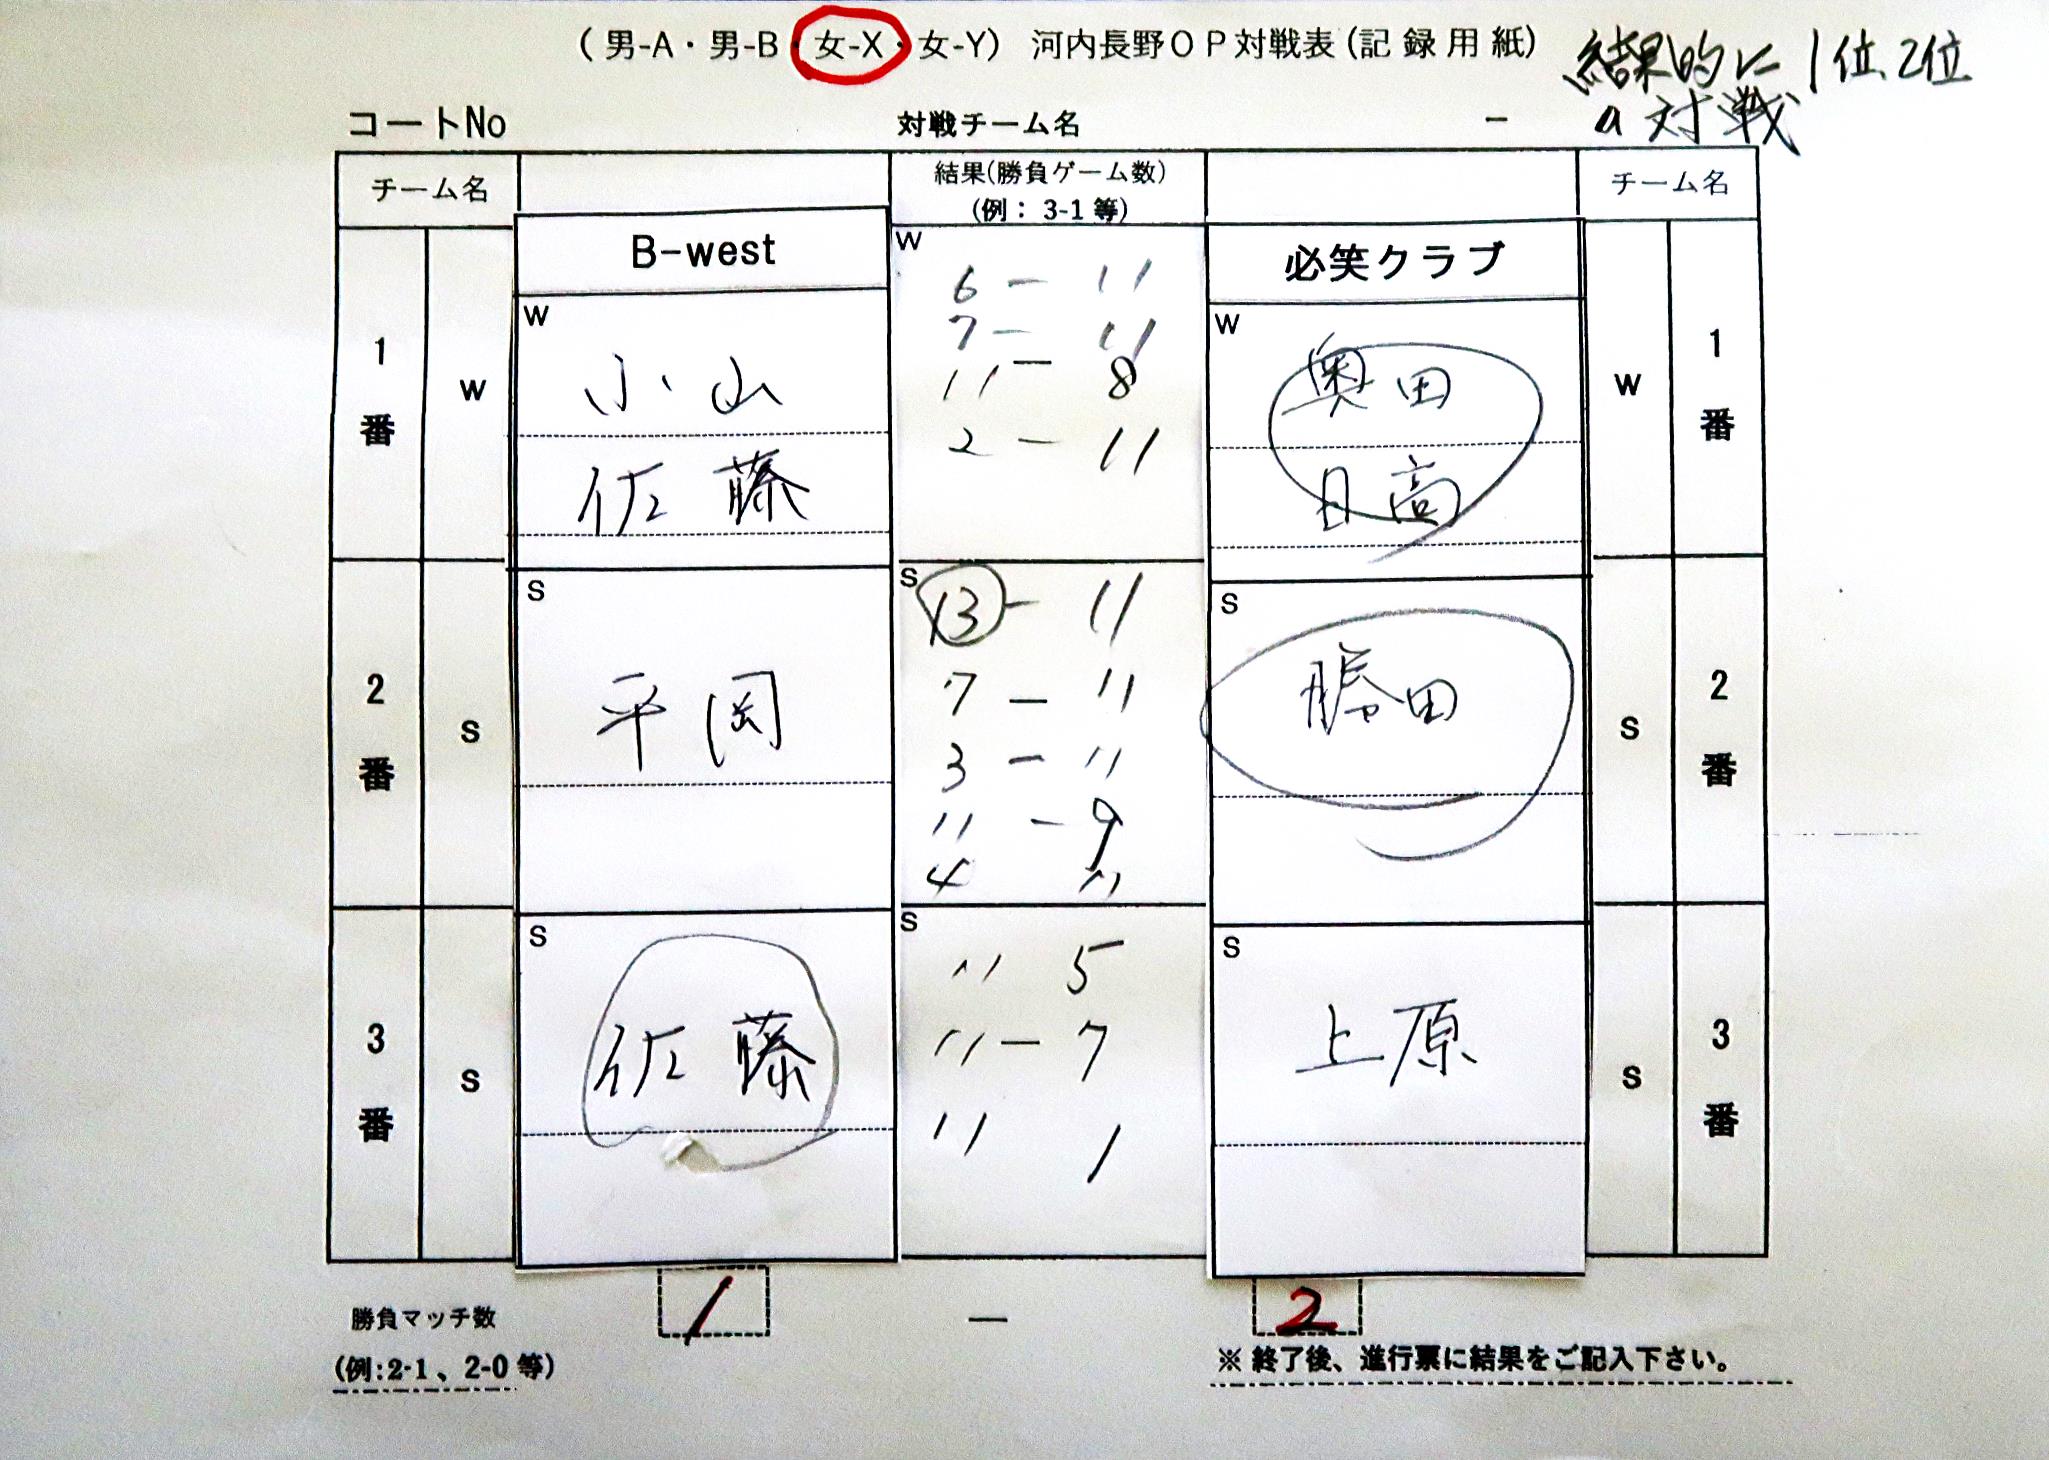 (男-A・男-B・女-X・女-Y) 河内長野OP対戦表(記録用紙)
結果的に1位、2位
の対戦
コートNo 対戦チーム名 -
チーム名 結果(勝負ゲーム数) チーム名
(例: 3-1 等)
B-west 必笑クラブ
1番 W W 小山 佐藤 W W 奥田 日高 W 1番
6 - 11
7 - 11
11 - 8
2 - 11
2番 S S 平岡 S S 勝田 S 2番
13 - 11
7 - 11
3 - 11
11 - 9
4 11
3番 S S 佐藤 S S 上原 S 3番
11 5
11 - 7
11 1
勝負マッチ数 1 - 2
(例:2-1、2-0 等) ※ 終了後、進行票に結果をご記入下さい。